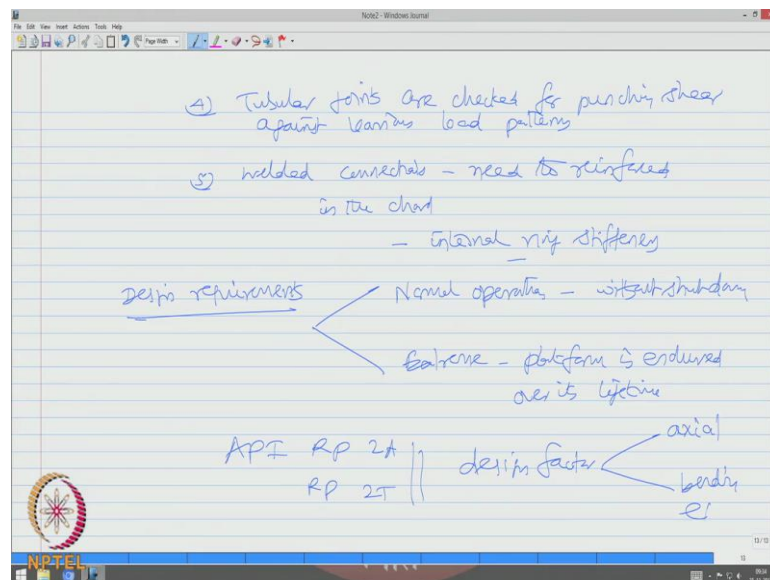 Note2 - Windows Journal
File Edit View Insert Actions Tools Help
Page Width
4) Tubular joints are checked for punching shear
against various load patterns
5) Welded connections - need to reinforced
in the chord
- internal ring stiffeners
Design requirements
Normal operation - without shutdown
Extreme - platform is endured
over its lifetime
API RP 2A
RP 2T
design factor
axial
bending
NPTEL
13/13
13
09:34